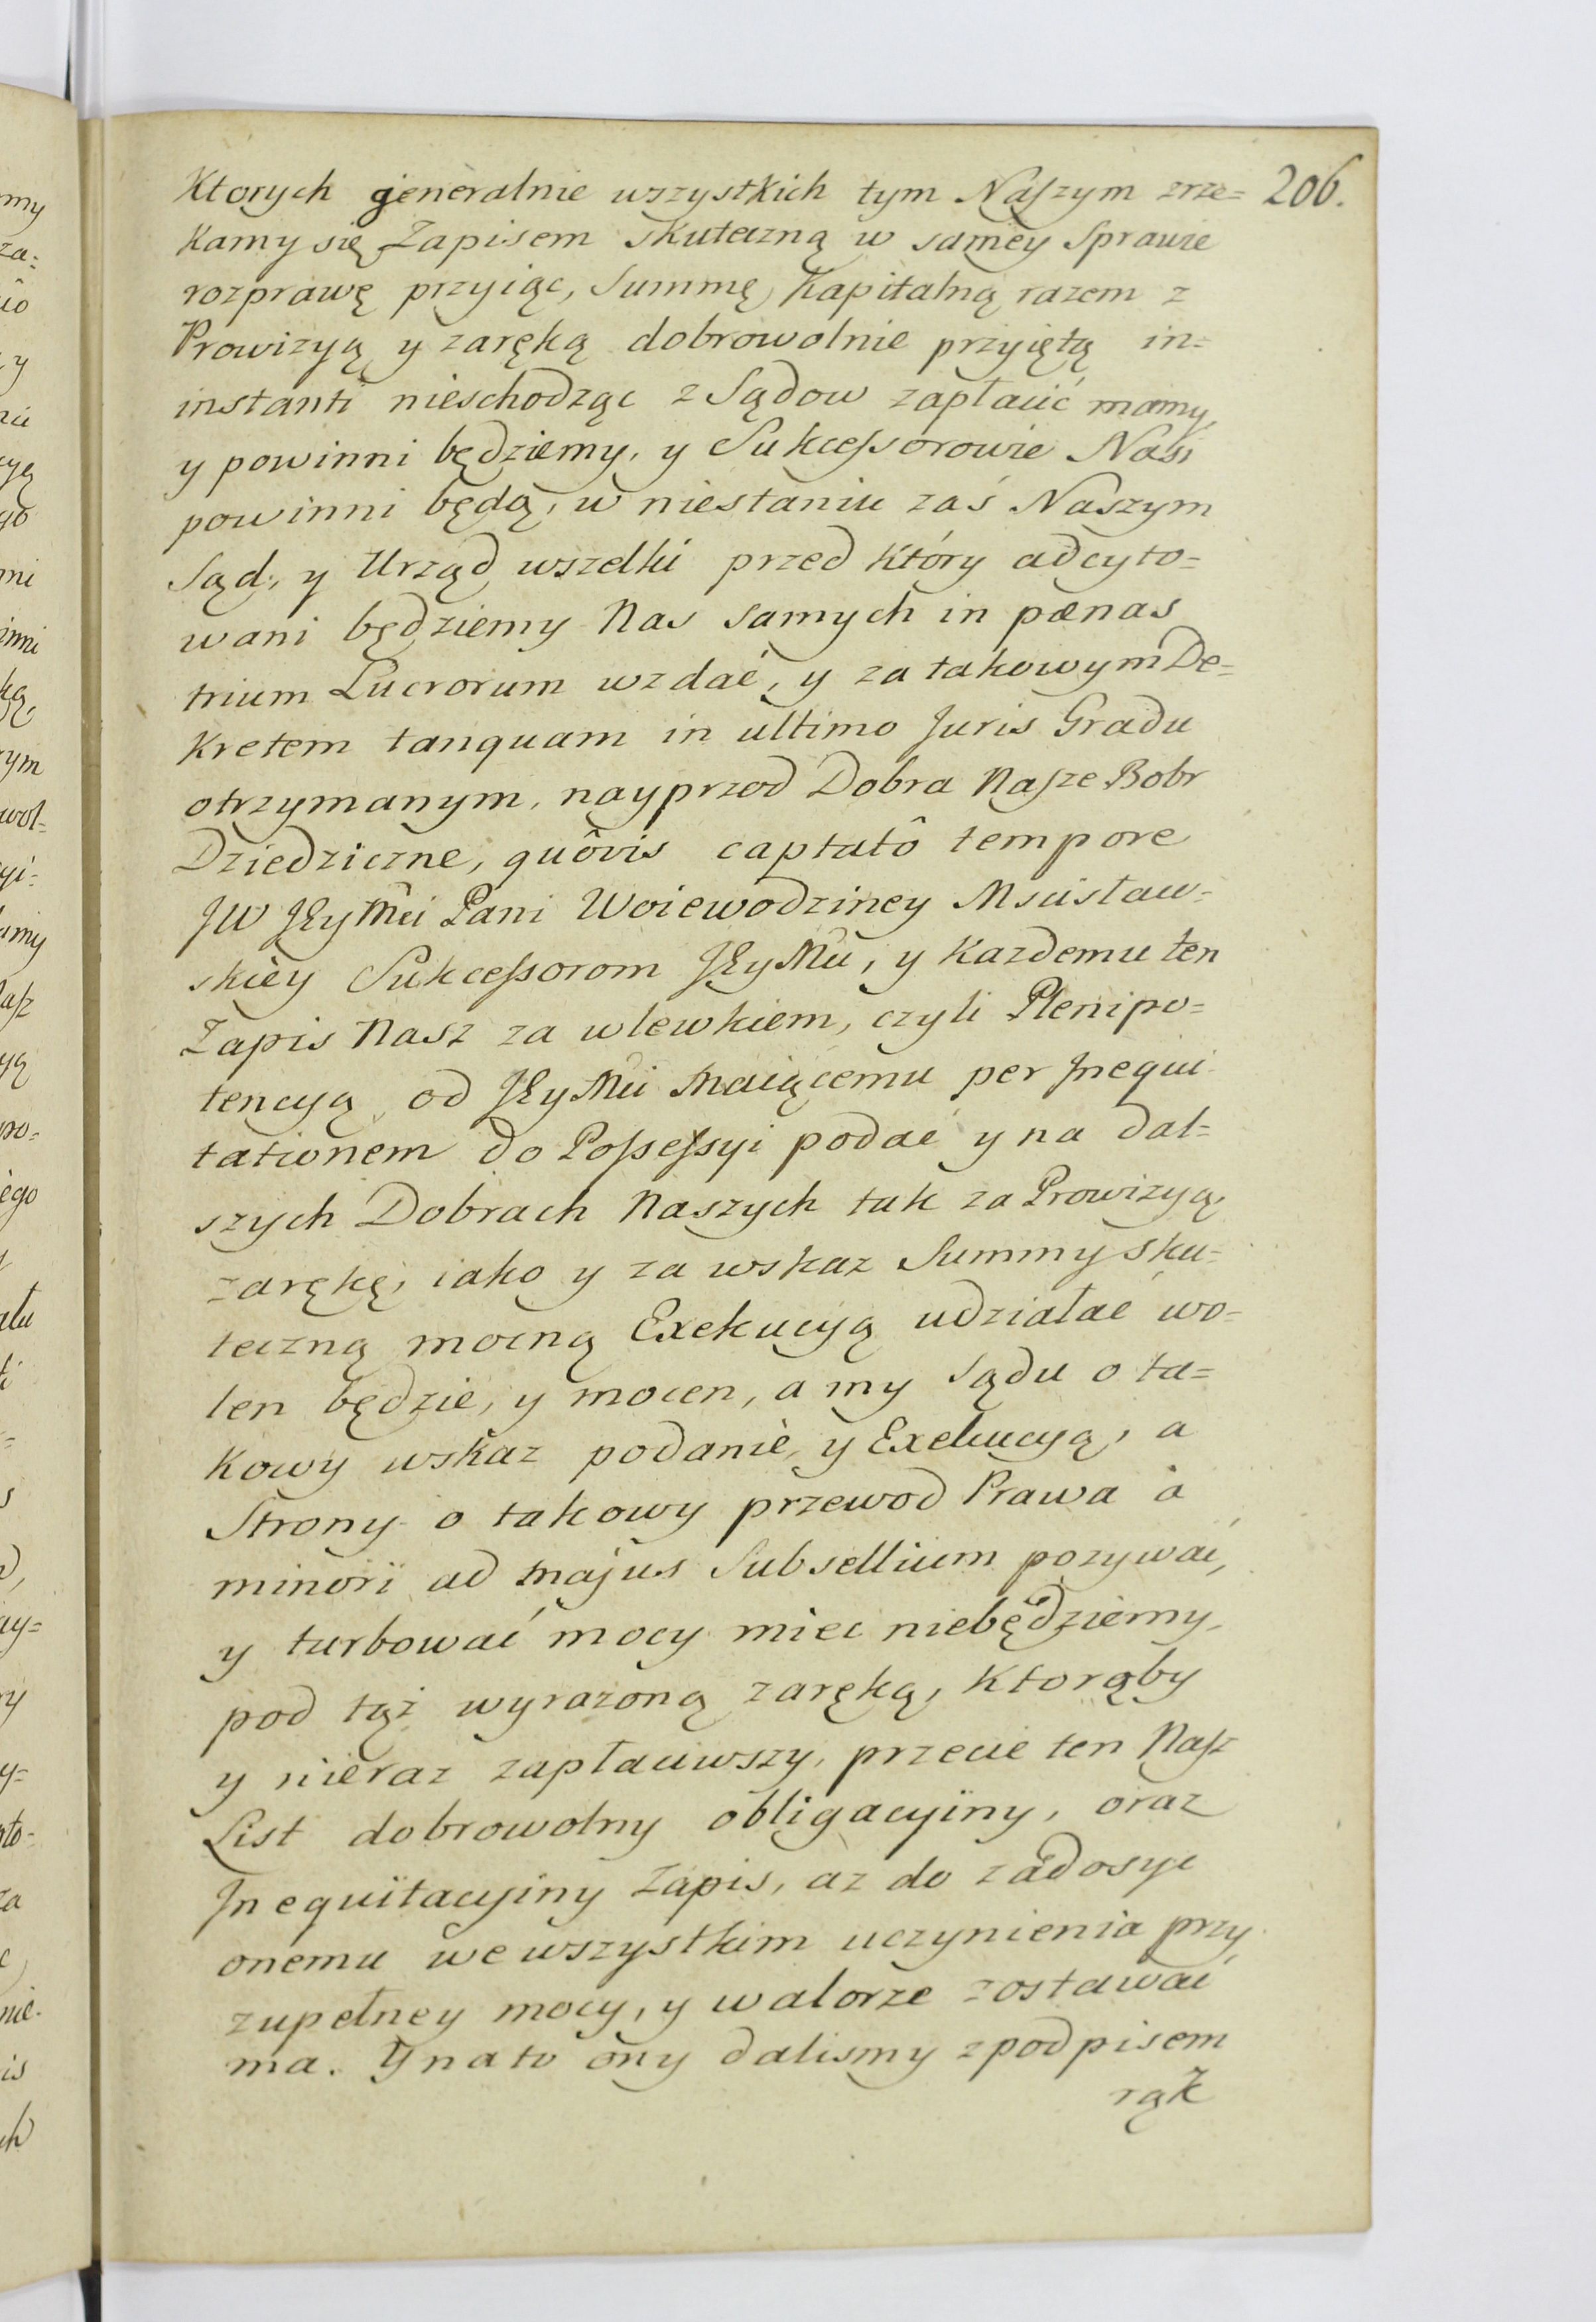 Ktorych generalnie wszystkich tym Naszym zrze= 206.
kamy się Zapisem skuteczną w samey Sprawie
rozprawę przyiąc, Summę Kapitalną razem z
Prowizyą y zaręką dobrowolnie przyiętą in=
instanti nieschodząc z Sądow zapłacić mamy,
y powinni będziemy, y Sukcessorowie Nasi
powinni będą, w niestaniu zaś Naszym
Sąd, y Urząd wszelki przed który adcyto=
wani będziemy Nas samych in pœnas
trium Lucrorum wzdać, y za takowym De=
kretem tanquam in ultimo Juris Gradu
otrzymanym, nayprzod Dobra Nasze Bobr
Dziedziczne, quôvis captatô tempore
JW JEyMci Pani Woiewodziney Mscisław=
skiey Sukcessorom JEyMci, y kazdemu ten
Zapis Nasz za wlewkiem, czyli Plenipo=
tencyą od JEyMci Maiącemu per Inequi
tationem do Possessyi podać y na dal=
szych Dobrach Naszych tak za Prowizyą,
zarękę, iako y za wskaz Summy sku=
teczną mocną Exekucyą udziałać wo=
len będzie, y mocen, a my Sądu o ta=
kowy wskaz podanie, y Exekucyą, a
Strony o takowy przewod Prawa à
minori ad majus Subsellium pozywać,
y turbować mocy miec niebędziemy,
pod tąż wyrazoną zaręką, ktorąby
y nieraz zapłaciwszy, przecie ten Nasz
List dobrowolny obligacyiny, oraz
Inequitacyiny Zapis, az do zadosyc
onemu we wszystkim uczynienia przy
zupełney mocy, y walorze zostawać
ma. Y na to ony dalismy z podpisem
rąk